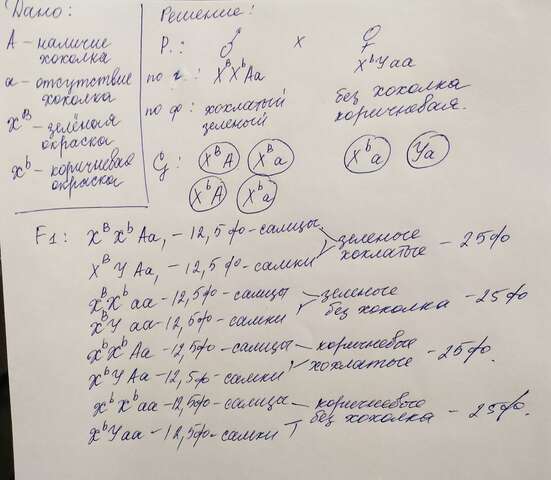 Дано:
А – наличие
хохолка
а – отсутствие
хохолка
X^B – зелёная
окраска
X^b – коричневая
окраска
Решение:
P.: ♂ х ♀
по г.: X^B X^b Aa X^b Y aa
по ф: хохлатый
зеленый
без хохолка
коричневая.
G: X^B A X^B a X^b a Ya
X^b A X^b a
F1: X^B X^b Aa, – 12,5% – самцы
X^B Y Aa, – 12,5% – самки
зеленые
хохлатые – 25%
X^B X^b aa – 12,5% – самцы
X^B Y aa – 12,5% – самки
зеленые
без хохолка – 25%
X^b X^b Aa – 12,5% – самцы
X^b Y Aa – 12,5% – самки
коричневые
хохлатые – 25%.
X^b X^b aa – 12,5% – самцы
X^b Y aa – 12,5% – самки
коричневого
без хохолка – 25%.